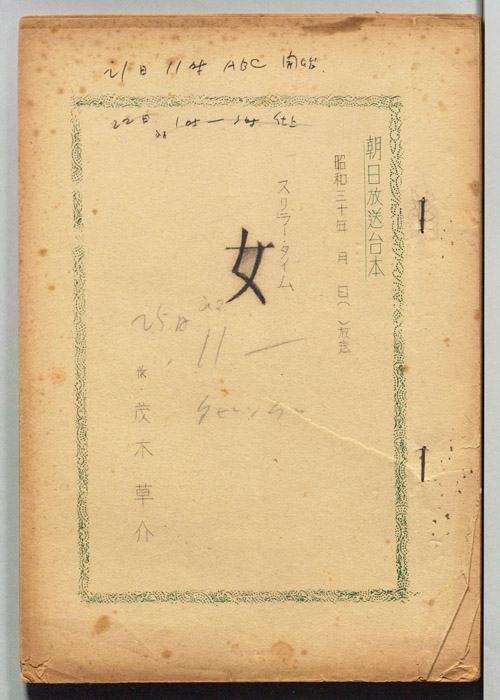 21日 11時 ABC 開始.
22日 1時—
朝日放送台本
昭和三十年 月 日( )放送
スリラー・タイム
女
25日
11—
作 茂木草介